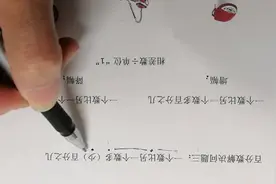 百分数解决问题三：一个数比另一个数多（少）百分之几
一个数比另一个数多百分之几
一个数比另一个
增幅，
降幅，
相差数÷单位“1”